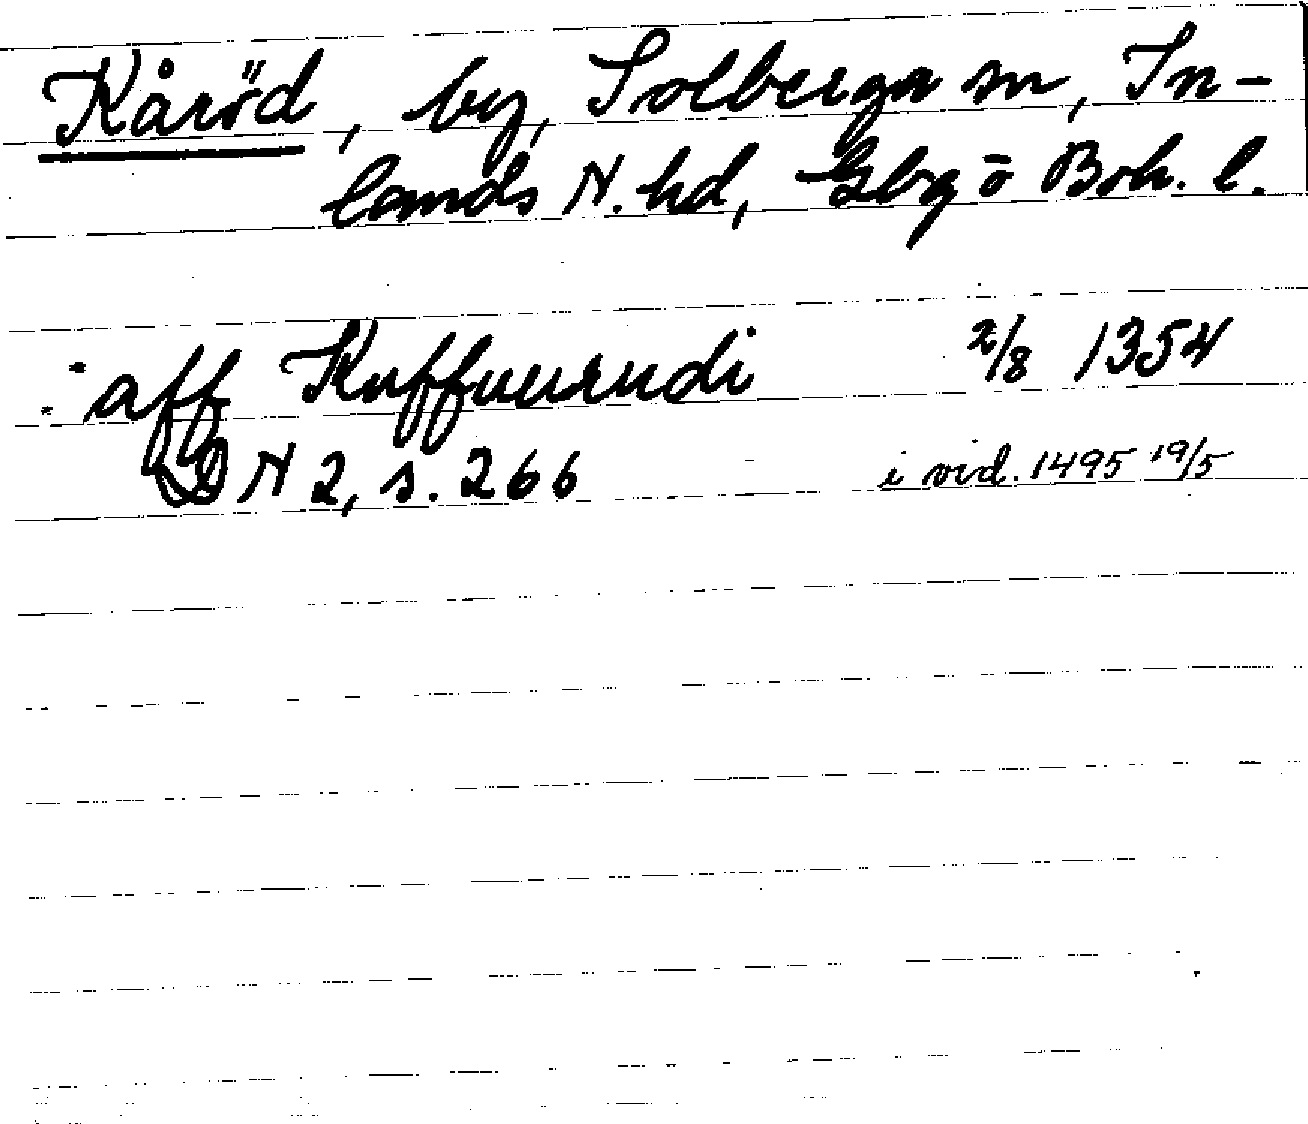 Kåröd, by, Solberga sn, In-
lands N. hd, Gbg o Boh. l.
aff Kuffuurudi 2/8 1354
DN 2, s. 266 i vid. 1495 19/5